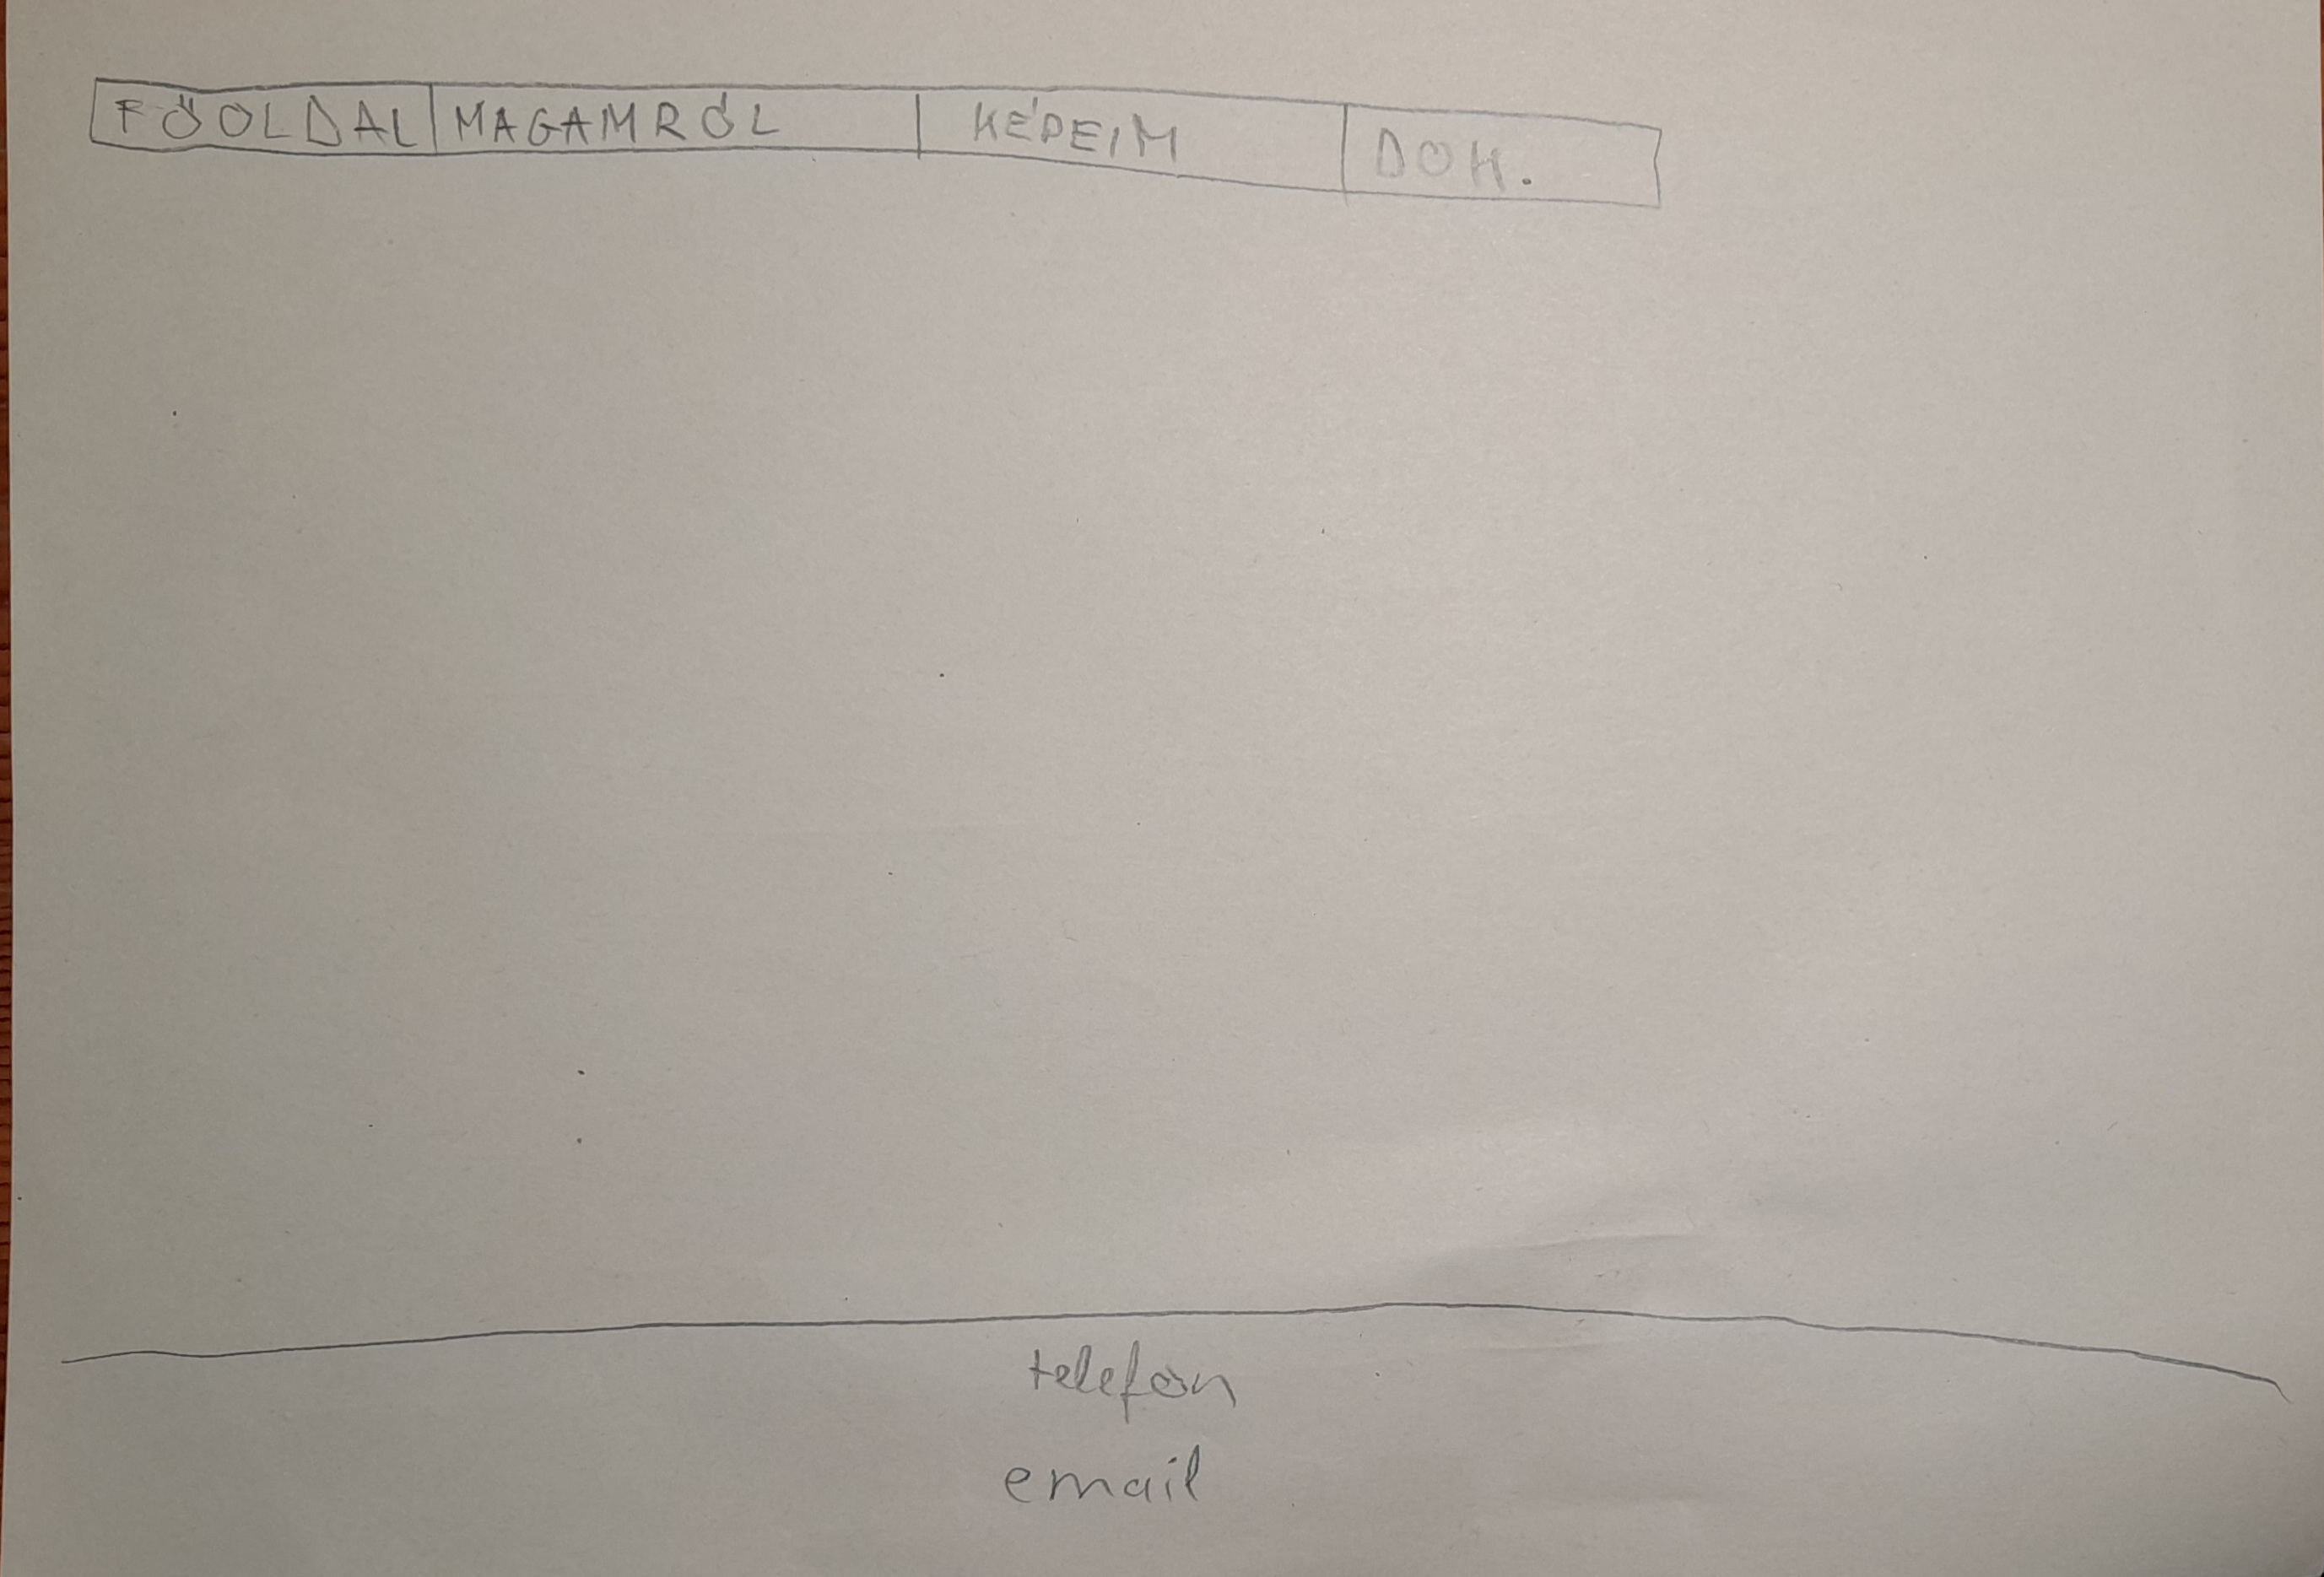 FŐOLDAL MAGAMRÓL KÉPEIM DOK.
telefon
email